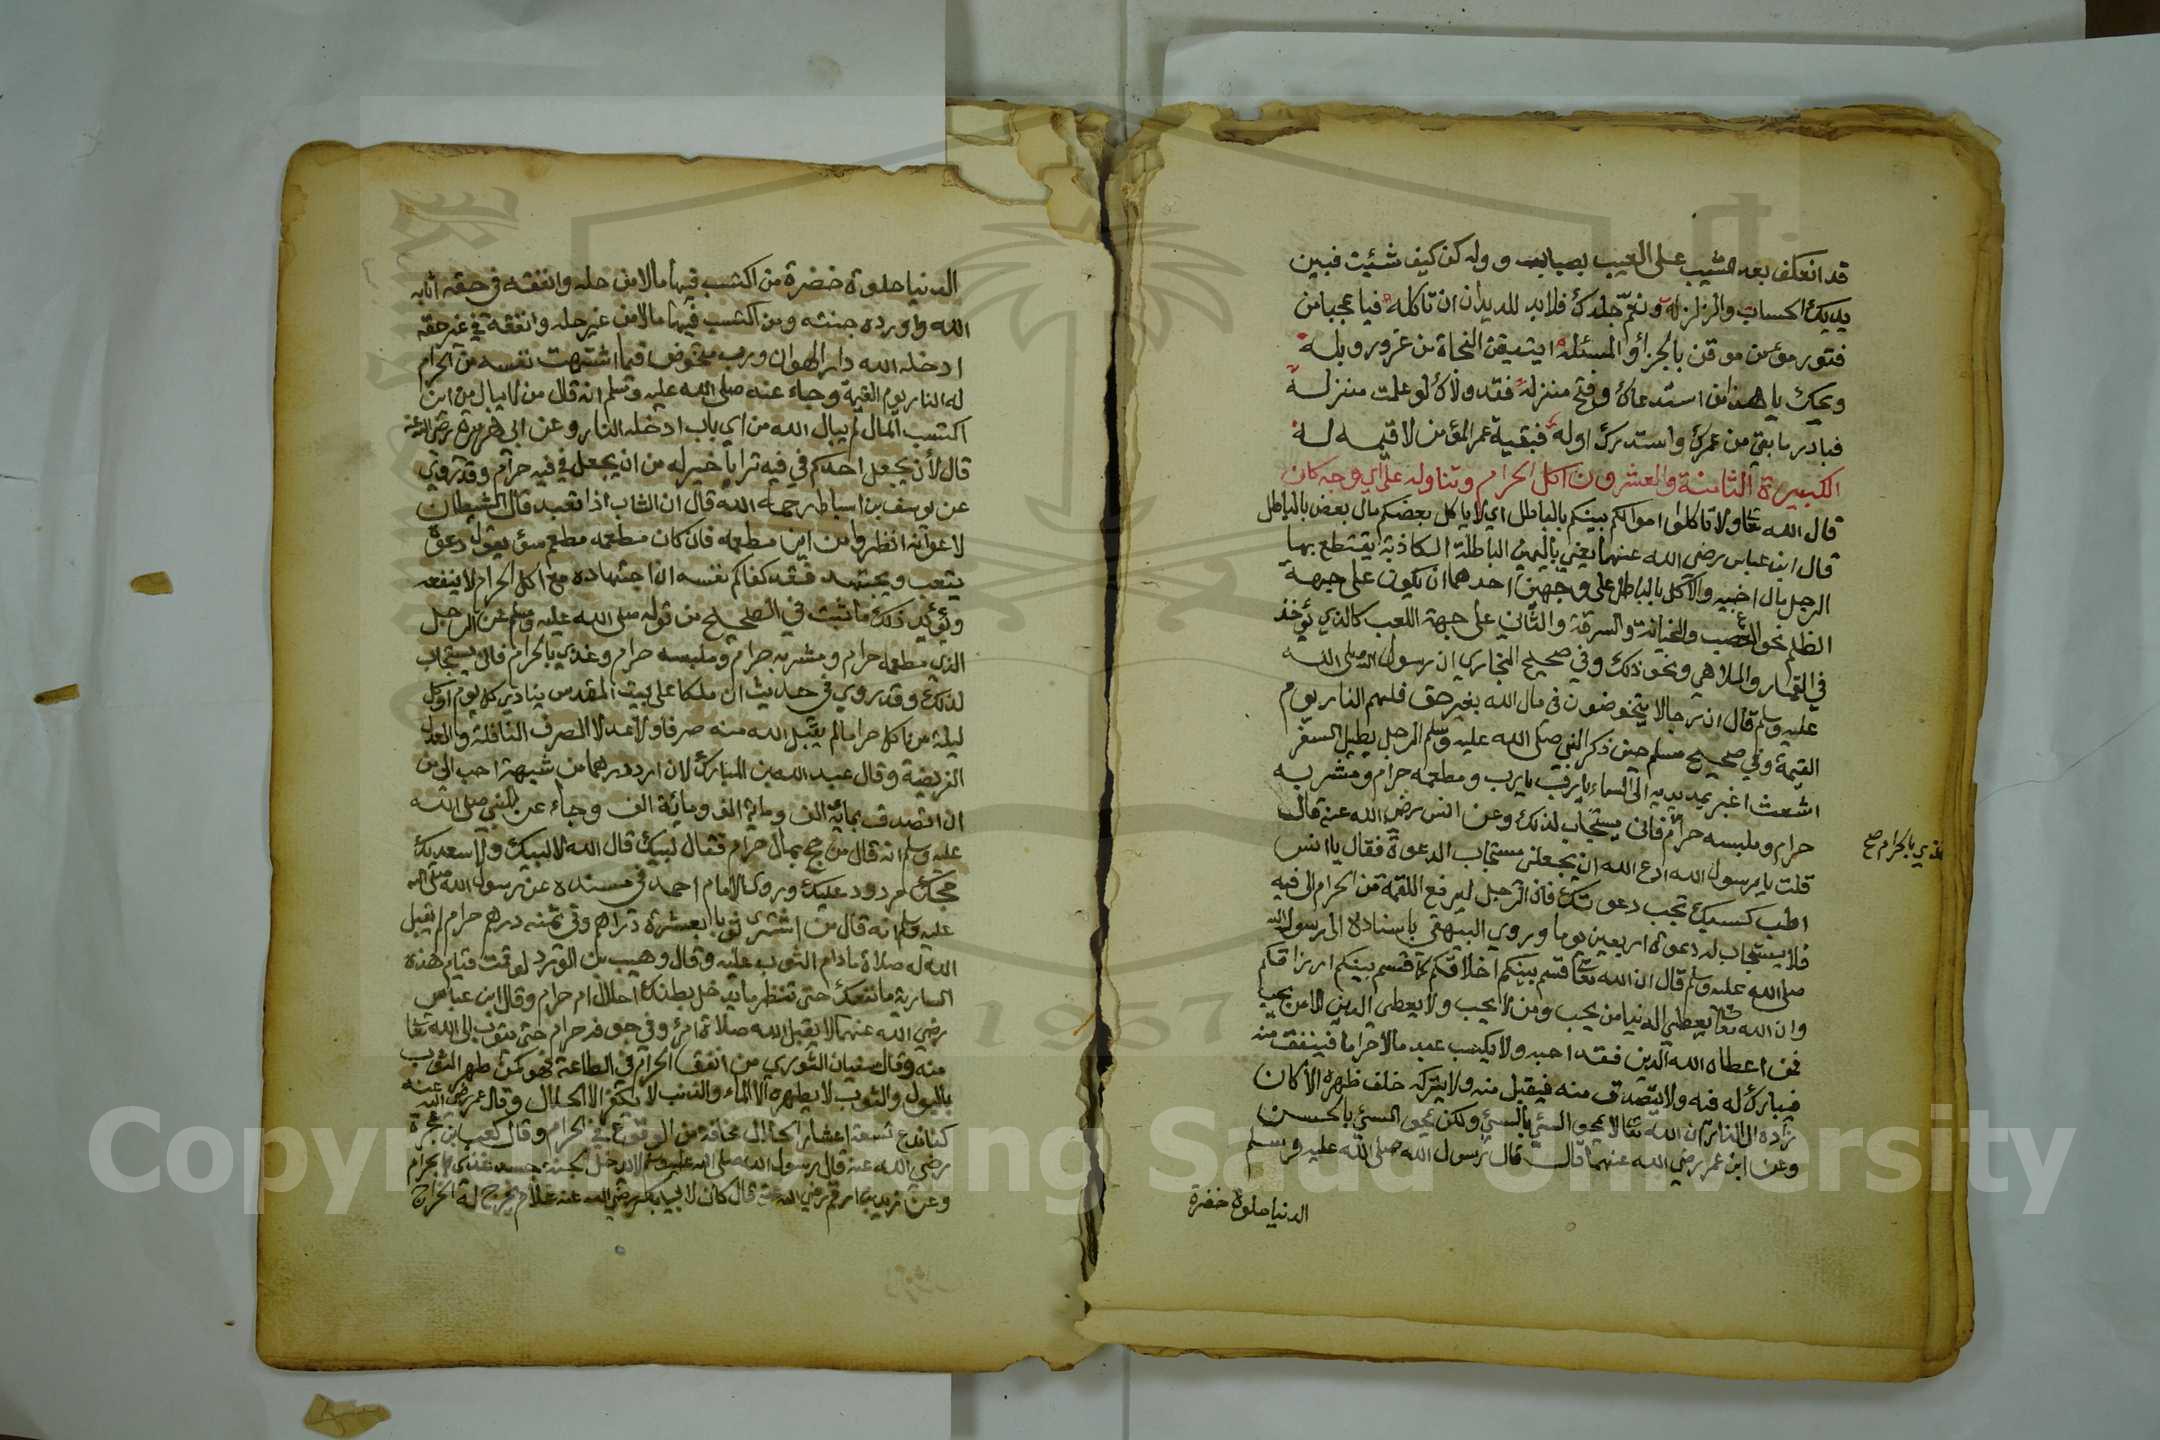 قد انعكف بعد الشيب على العيب بصبابه وله كن كيف شئيت فبين
يديك الحساب والزلزله ونعم جلدك فلا بد للديدان ان تاكله فيا عجبا من
فتور مؤمن موقن بالجزاؤ المسئله ايتيقن النجاة من غرور وبله
ويحك يا هذا من استدعاك وفتح منزله فقد ولاك لو علمت منزله
فبادر ما بقي من عمرك واستدرك اوله فبقية عمر المؤمن لا قيمه له
الكبيرة الثامنة والعشرون اكل الحرام وتناوله على اي وجه كان
قال الله تعا ولا تاكلوا اموالكم بينكم بالباطل اي لا ياكل بعضكم مال بعض بالباطل
قال ابن عباس رضي الله عنهما يعني باليمين الباطلة الكاذبة يقتطع بها
الرجل مال اخيه والاكل بالباطل على وجهين احدهما ان يكون على جهة
الظلم نحو الغصب والخيانة والسرقة والثاني على جهة اللعب كالذي يؤخذ
في القمار والملاهي ونحو ذلك وفي صحيح البخاري ان رسول الله صلى الله
عليه وسلم قال ان رجالا يتخوضون في مال الله بغير حق فلهم النار يوم
القيمة وفي صحيح مسلم حين ذكر النبي صلى الله عليه وسلم الرجل يطيل السفر
اشعث اغبر يمد يديه الى السماء يا رب يا رب ومطعمه حرام ومشربه
حرام وملبسه حرام فانى يستجاب لذلك وعن انس رضي الله عنه قال
غذي بالحرام صح
قلت يا رسول الله ادع الله ان يجعلني مستجاب الدعوة فقال يا انس
اطب كسبك تجب دعوتك فان الرجل ليرفع اللقمة من الحرام الى فيه
فلا يستجاب له دعوة اربعين يوما وروي البيهقي باسناده الى رسول الله
صلى الله عليه وسلم قال ان الله تعا قسم بينكم اخلاقكم كما قسم بينكم ارزاقكم
وان الله تعا يعطي الدنيا من يحب ومن لا يحب ولا يعطي الدين الا من يحب
فمن اعطاه الله الدين فقد احبه ولا يكسب عبد مالا حراما فينفق منه
فيبارك له فيه ولا يتصدق منه فيقبل منه ولا يتركه خلف ظهره الا كان
زاده الى النار ان الله تعا لا يمحو السئ بالسئ ولكن يمحو السئ بالحسن
وعن ابن عمر رضي الله عنهما قال قال رسول الله صلى الله عليه وسلم
الدنيا حلوة خضرة
الدنيا حلوة خضرة من اكتسب فيها مالا من حله وانفقه في حقه اثابه
الله واورده جنته ومن اكتسب فيها مالا من غير حله وانفقه في غير حقه
ادخله الله دار الهوان ورب متخوض فيما اشتهت نفسه من الحرام
له النار يوم القيمة وجاء عنه صلى الله عليه وسلم انه قال من لا يبال من اين
اكتسب المال لم يبال الله من اي باب ادخله النار وعن ابي هريرة رضي الله عنه
قال لأن يجعل احدكم في فيه ترابا خير له من ان يجعل في فيه حرام وقد روي
عن يوسف بن اسباط رحمه الله قال ان الشاب اذا تعبد قال الشيطان
لاعوانه انظروا من اين مطعمه فان كان مطعمه مطعم سؤ يقول دعوه
يتعب ويجتهد فقد كفاكم نفسه ان اجتهاده مع اكل الحرام لا ينفعه
ويؤيد ذلك ما ثبت في الصحيح من قوله صلى الله عليه وسلم عن الرجل
الذي مطعمه حرام ومشربه حرام وملبسه حرام وغذي بالحرام فانى يستجاب
لذلك وقد روي في حديث ان ملكا على بيت المقدس ينادي كل يوم وكل
ليلة من اكل حراما لم يقبل الله منه صرفا ولا عدلا الصرف النافلة والعدل
الفريضة وقال عبد الله بن المبارك لان ارد درهما من شبهة احب الي من
ان اتصدق بماية الف وماية الف وماية الف وجاء عن النبي صلى الله
عليه وسلم انه قال من حج بمال حرام فقال لبيك قال الله لا لبيك ولا سعديك
حجك مردود عليك وروى الامام احمد في مسنده عن رسول الله صلى الله
عليه وسلم انه قال من اشترى ثوبا بعشرة دراهم وفي ثمنه درهم حرام لم يقبل
الله له صلاة ما دام الثوب عليه وقال وهيب بن الورد لو قمت قيام هذه
السارية ما نفعك حتى تنظر ما يدخل بطنك احلال ام حرام وقال ابن عباس
رضي الله عنهما لا يقبل الله صلاة امرئ وفي جوفه حرام حتى يتوب الى الله تعا
منه وقال سفيان الثوري من انفق الحرام في الطاعة فهو كمن طهر الثوب
بالبول والثوب لا يطهره الا الماء والذنب لا يكفره الا الحلال وقال عمر رضي الله عنه
كنا ندع تسعة اعشار الحلال مخافة من الوقوع في الحرام وقال كعب بن عجرة
رضي الله عنه قال رسول الله صلى الله عليه وسلم لا يدخل الجنة جسد غذي بالحرام
وعن زيد بن ارقم رضي الله عنه قال كان لابي بكر رضي الله عنه غلام يخرج له الخراج
Copyright © King Saud University
1957